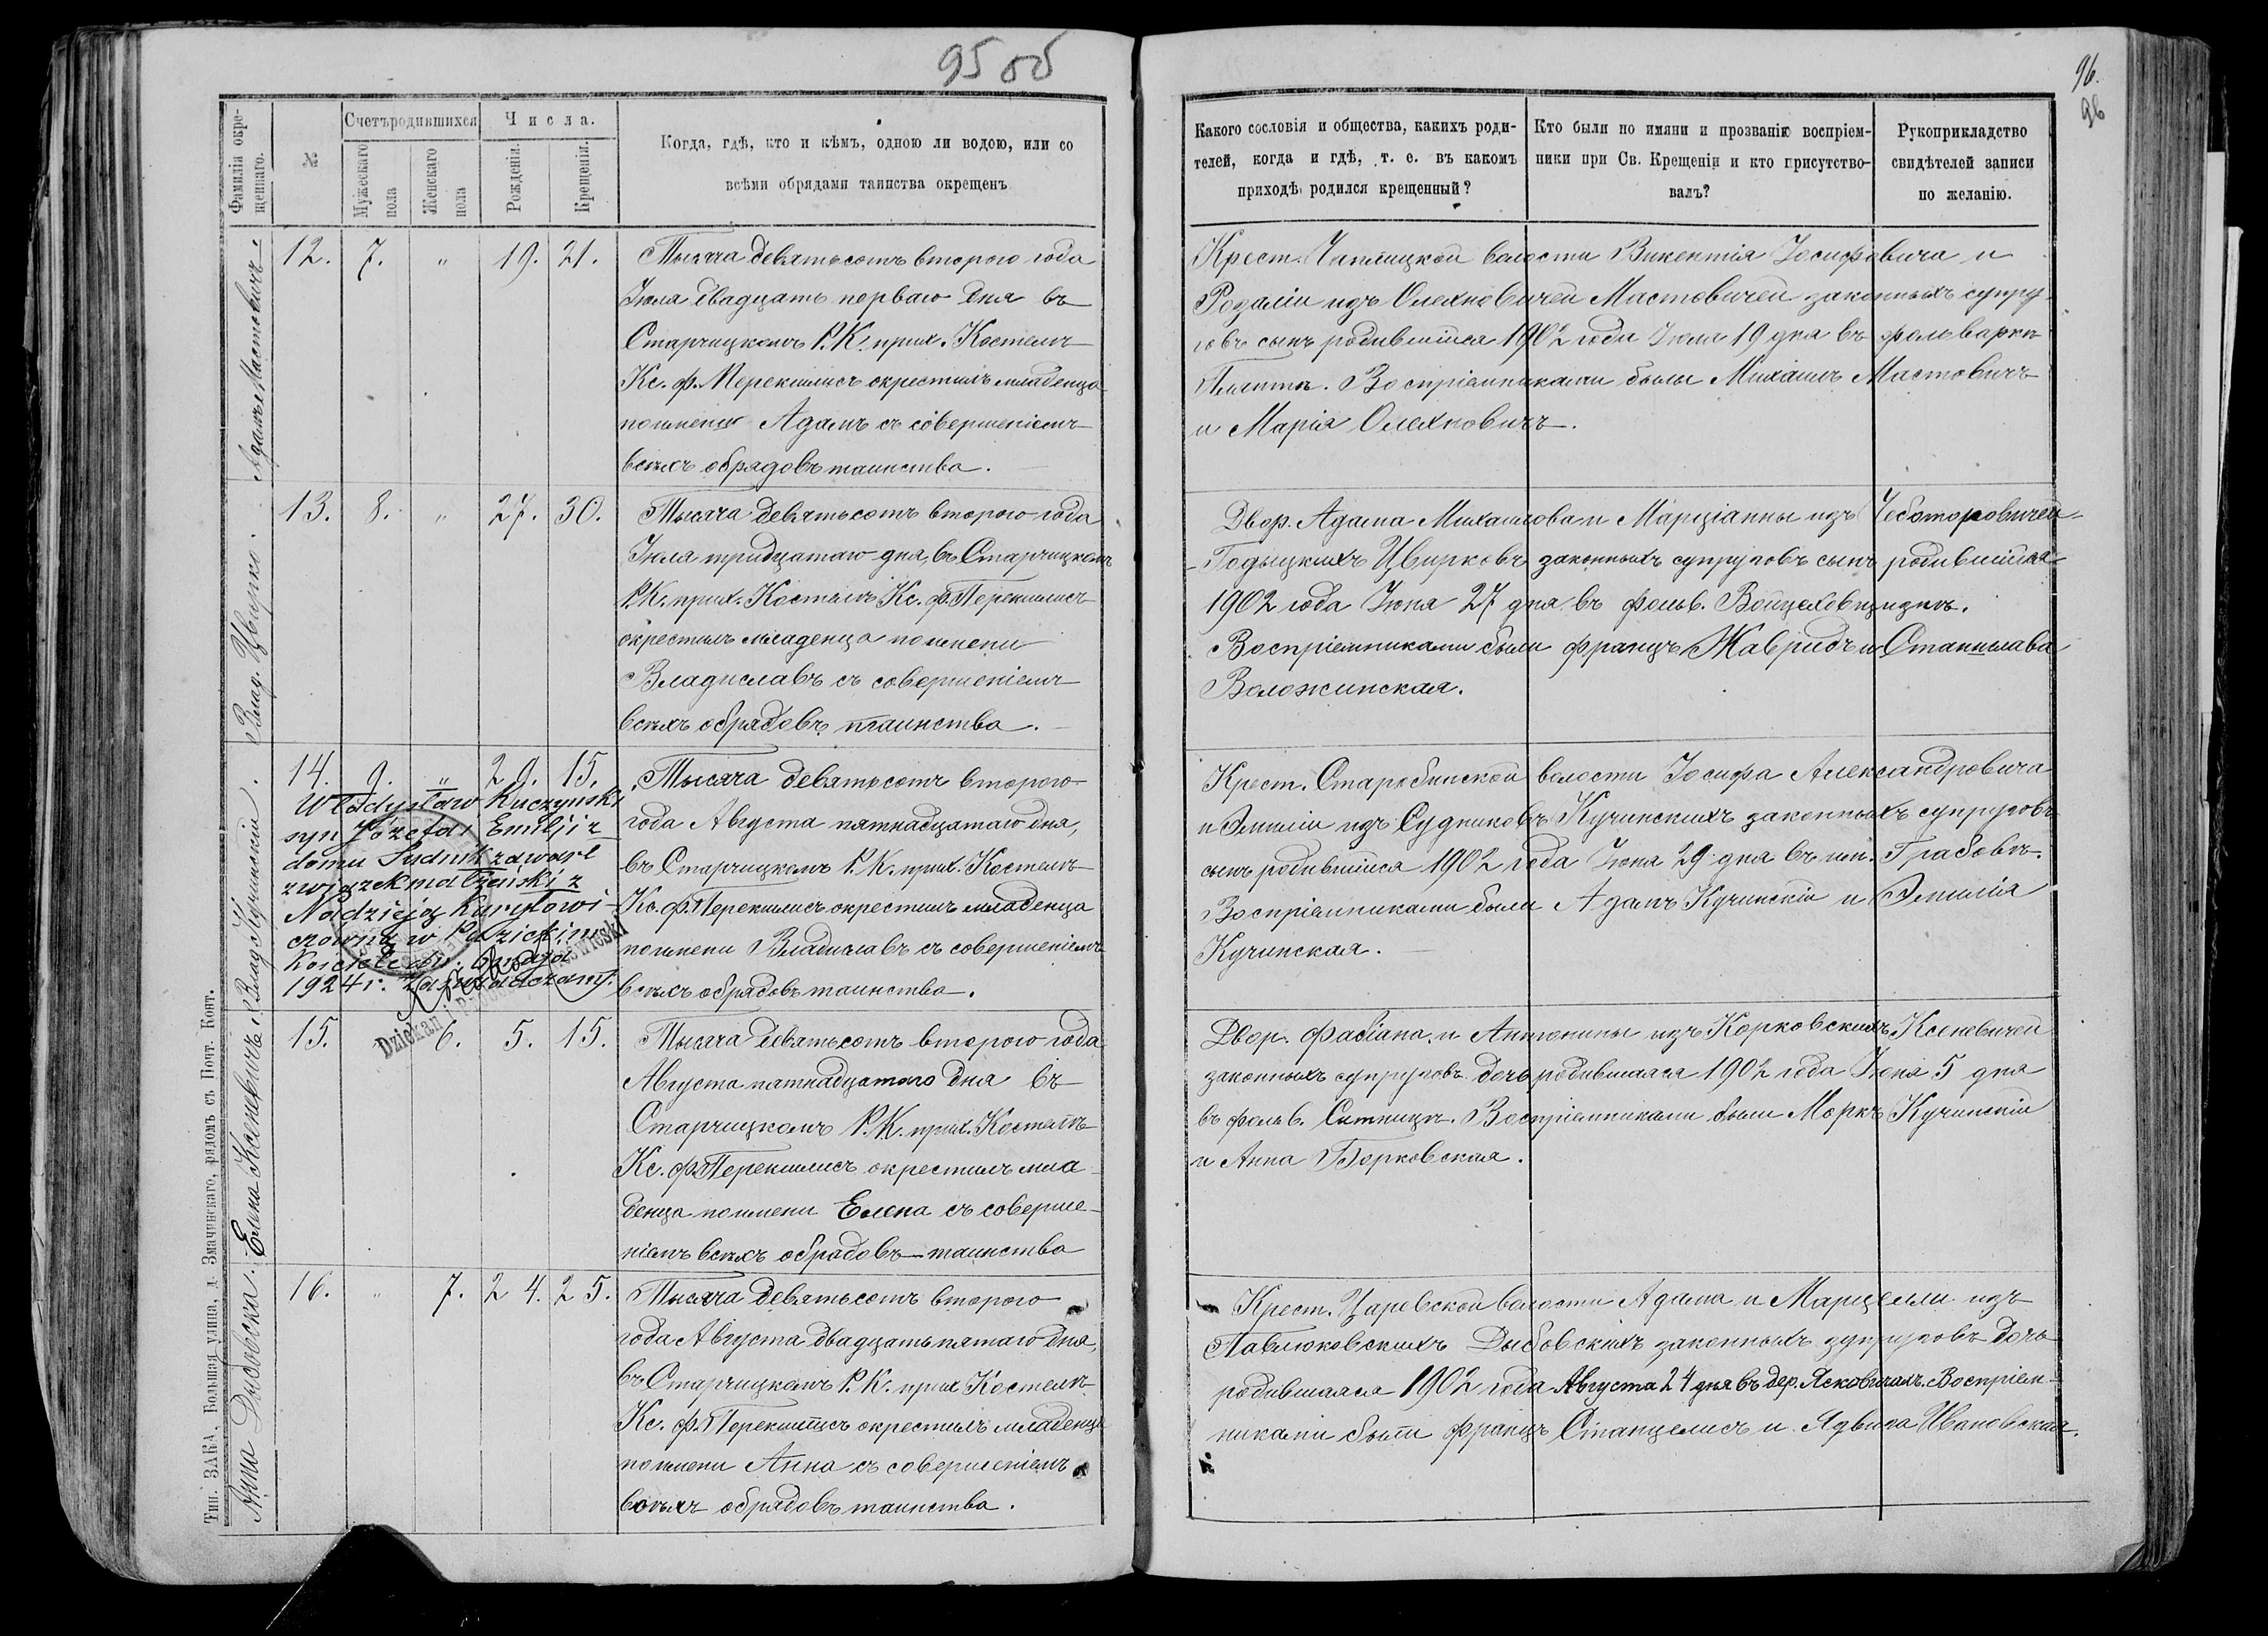 95 об
96.
96
Фамилія окре-
щеннаго.
№
Счетъ родившихся
Мужескаго
пола
Женскаго
пола
Числа.
Рожденія.
Крещенія.
Когда, гдѣ, кто и кѣмъ, одною ли водою, или со
всѣми обрядами таинства окрещенъ
Какого сословія и общества, какихъ роди-
телей, когда и гдѣ, т. е. въ какомъ
приходѣ родился крещенный?
Кто были по имяни и прозванію воспріем-
ники при Св. Крещеніи и кто присутство-
валъ?
Рукоприкладство
свидѣтелей записи
по желанію.
Адамъ Мастовичъ
12. 7. " 19. 21.
Тысяча девятьсотъ второго года
Іюля двадцать перваго дня въ
Старчицкомъ Р.К. прих. Костелѣ
Кс. Ф. Перекшлисъ окрестилъ младенца
по имени Адамъ съ совершеніемъ
всѣхъ обрядовъ таинства.
Крест. волости Викентія Іосифовича и
Розаліи изъ Олехновичей Мастовичей законныхъ супру-
говъ сынъ родившійся 1902 года Іюля 19 дня въ фольваркѣ
Воспріемниками были Михаилъ Мастовичъ
и Марія Олехновичъ.
Влад. Цвирко
13. 8. " 27. 30.
Тысяча девятьсотъ второго года
Іюля тридцатаго дня, въ Старчицкомъ
Р.К. прих. Костелѣ Кс. Ф. Перекшлисъ
окрестилъ младенца по имени
Владиславъ съ совершеніемъ
всѣхъ обрядовъ таинства.
Двор. Адама Михайлова и Марціанны изъ Чеботоровичей
Годыцкихъ Цвирковъ законныхъ супруговъ сынъ родившійся
1902 года Іюня 27 дня въ фольв. Войцеховщизнѣ.
Воспріемниками были Францъ Жавридъ и Станислава
Воложинская.
Влад. Кучинскій.
14. 9. " 29. 15.
Władysław Kuczyński
syn Józefa i Emilji z
domu Sudnik zawarł
związek małżeński z
Nadzieją Kuryłowi-
czówną w
Kościele dn.
1924 r. Zaświadczam.
Dziekan i
Тысяча девятьсотъ второго
года Августа пятнадцатаго дня,
въ Старчицкомъ Р.К. прих. Костелѣ
Кс. Ф. Перекшлисъ окрестилъ младенца
по имени Владиславъ съ совершеніемъ
всѣхъ обрядовъ таинства.
Крест. Старобинской волости Іосифа Александровича
и Эмиліи изъ Судниковъ Кучинскихъ законныхъ супруговъ
сынъ родившійся 1902 года Іюня 29 дня въ им. Грабовѣ.
Воспріемниками были Адамъ Кучинскій и Эмилія
Кучинская.
Елена Ксеневичъ
15. 6. 5. 15.
Тысяча девятьсотъ второго года
Августа пятнадцатаго дня въ
Старчицкомъ Р.К. прих. Костелѣ
Кс. Ф. Перекшлисъ окрестилъ мла-
денца по имени Елена съ соверше-
ніемъ всѣхъ обрядовъ таинства
Двор. Фабіана и Антонины изъ Корковскихъ Ксеневичей
законныхъ супруговъ дочь родившаяся 1902 года Іюня 5 дня
въ фольв. Ситницѣ. Воспріемниками были Маркъ Кучинскій
и Анна Борковская.
Анна Дыбовска.
16. " 7. 24. 25.
Тысяча девятьсотъ второго
года Августа двадцать пятаго дня,
въ Старчицкомъ Р.К. прих. Костелѣ
Кс. Ф. Перекшлисъ окрестилъ младенца
по имени Анна съ совершеніемъ
всѣхъ обрядовъ таинства.
Крест. Царевской волости Адама и Марцелли изъ
Павлюковскихъ Дыбовскихъ законныхъ супруговъ дочь
родившаяся 1902 года Августа 24 дня въ дер. Ясковичахъ. Воспріем-
никами были Францъ Станцелисъ и Ядвига Ивановская.
Тип. ЗАКА, Большая улица, д. Змачинскаго, рядомъ съ Почт. Конт.